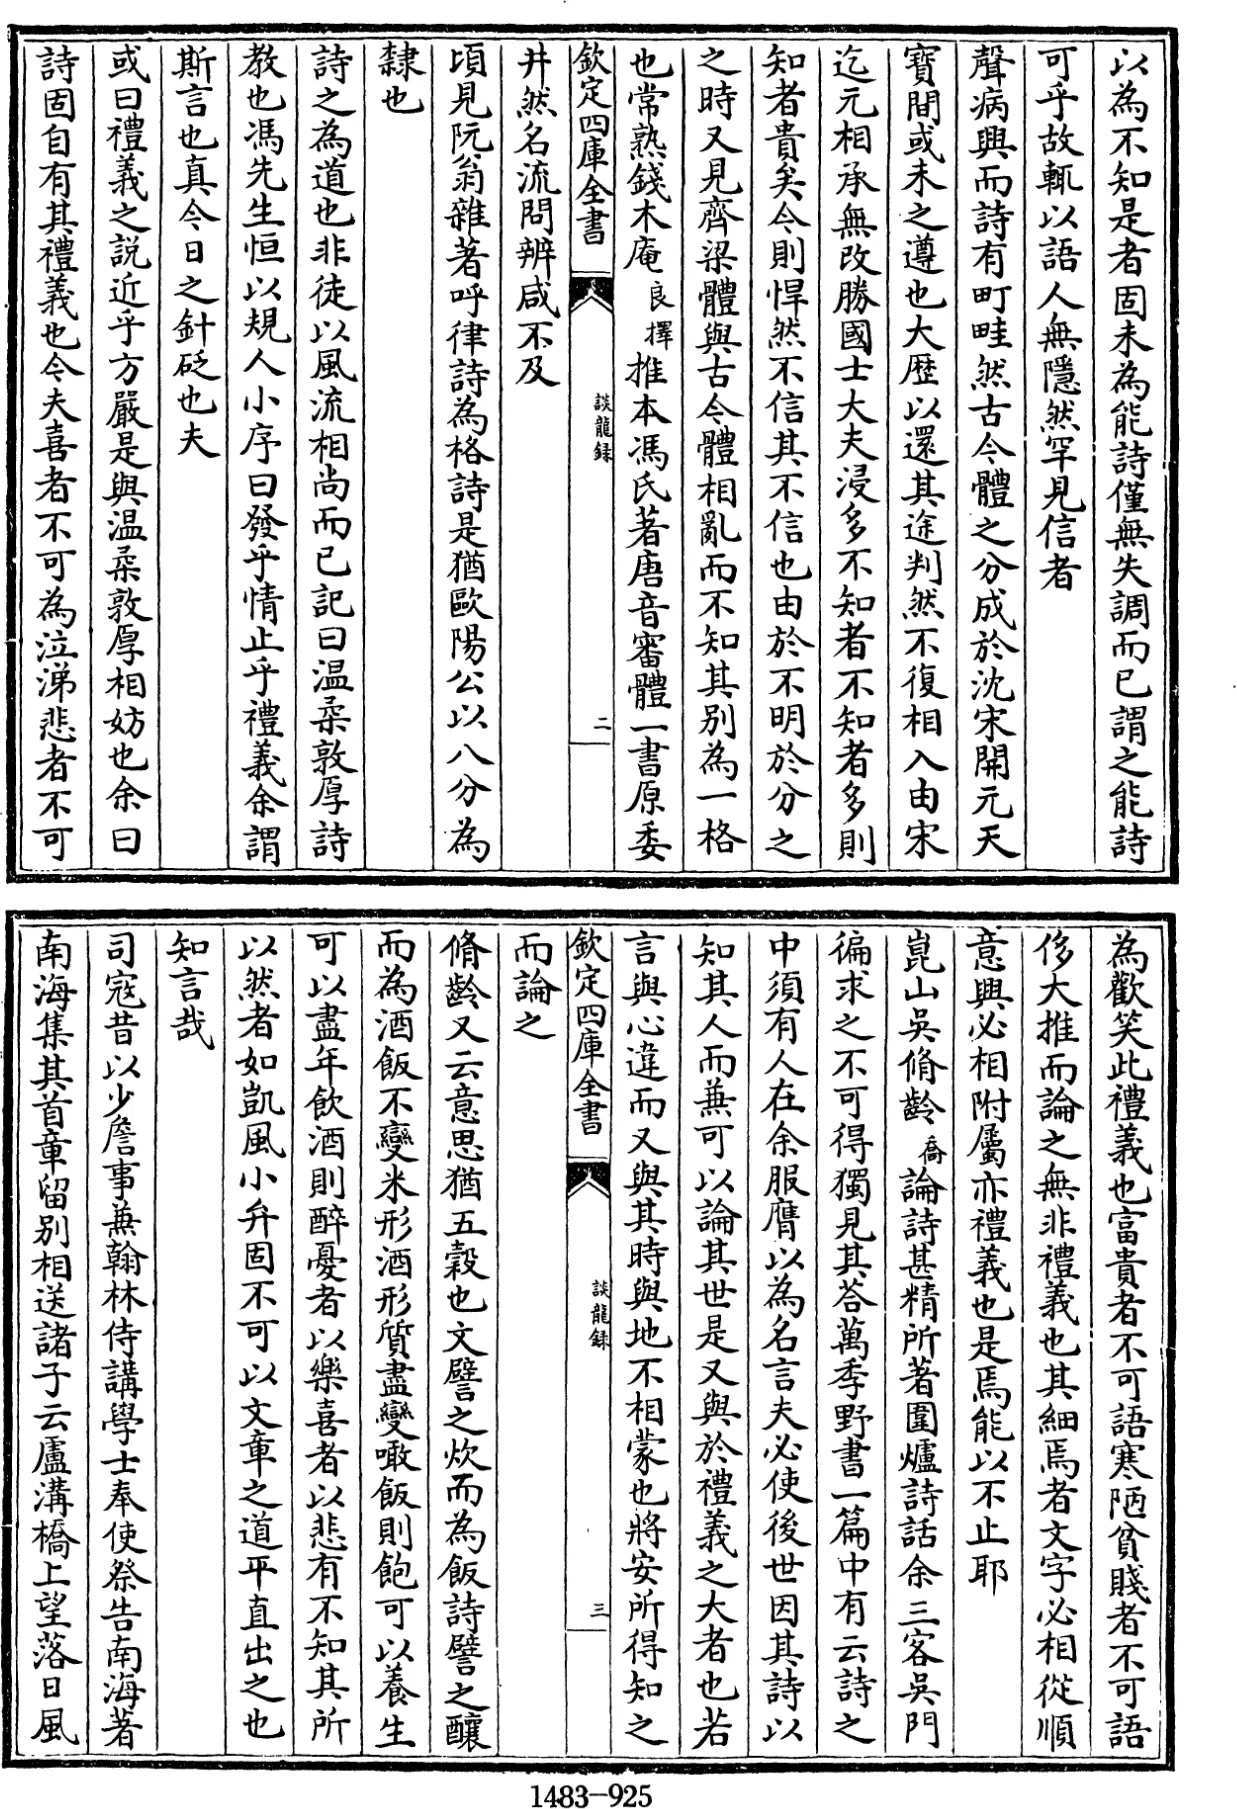 以為不知是者固未為能詩僅無失調而已謂之能詩
可乎故輒以語人無隱然罕見信者
聲病興而詩有町畦然古今體之分成於沈宋開元天
寶間或未之遵也大歴以還其途判然不復相入由宋
迄元相承無改勝國士大夫浸多不知者不知者多則
知者貴矣今則悍然不信其不信也由於不明於分之
之時又見齊梁體與古今體相亂而不知其别為一格
也常熟錢木庵良擇推本馮氏著唐音審體一書原委
欽定四庫全書
談龍録
二
井然名流問辨咸不及
頃見阮翁雜著呼律詩為格詩是猶歐陽公以八分為
隸也
詩之為道也非徒以風流相尚而已記曰温柔敦厚詩
教也馮先生恒以規人小序曰發乎情止乎禮義余謂
斯言也真今日之針砭也夫
或曰禮義之説近乎方嚴是與温柔敦厚相妨也余曰
詩固自有其禮義也今夫喜者不可為泣涕悲者不可
為歡笑此禮義也富貴者不可語寒陋貧賤者不可語
侈大推而論之無非禮義也其細焉者文字必相從順
意興必相附屬亦禮義也是焉能以不止耶
崑山吳脩齡喬論詩甚精所著圍爐詩話余三客吳門
徧求之不可得獨見其答萬季野書一篇中有云詩之
中須有人在余服膺以為名言夫必使後世因其詩以
知其人而兼可以論其世是又與於禮義之大者也若
言與心違而又與其時與地不相蒙也將安所得知之
欽定四庫全書
談龍録
三
而論之
脩齡又云意思猶五穀也文譬之炊而為飯詩譬之釀
而為酒飯不變米形酒形質盡變噉飯則飽可以養生
可以盡年飲酒則醉憂者以樂喜者以悲有不知其所
以然者如凱風小弁固不可以文章之道平直出之也
知言哉
司寇昔以少詹事兼翰林侍講學士奉使祭告南海著
南海集其首章留别相送諸子云盧溝橋上望落日風
1483-925